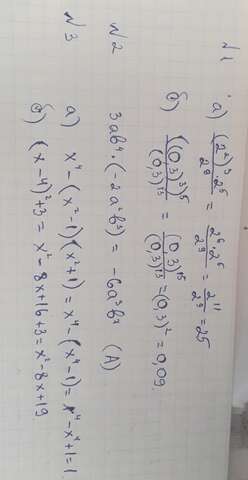 №1
а) ((2²)³·2⁵)/2⁹ = (2⁶·2⁵)/2⁹ = 2¹¹/2⁹ = 25
б) ((0,3)³)⁵/(0,3)¹³ = (0,3)¹⁵/(0,3)¹³ = (0,3)² = 0,09
№2 3ab⁴·(-2a²b³) = -6a³b⁷ (А)
№3
а) x⁴-(x²-1)(x²+1)=x⁴-(x⁴-1)=x⁴-x⁴+1=1
б) (x-4)²+3=x²-8x+16+3=x²-8x+19